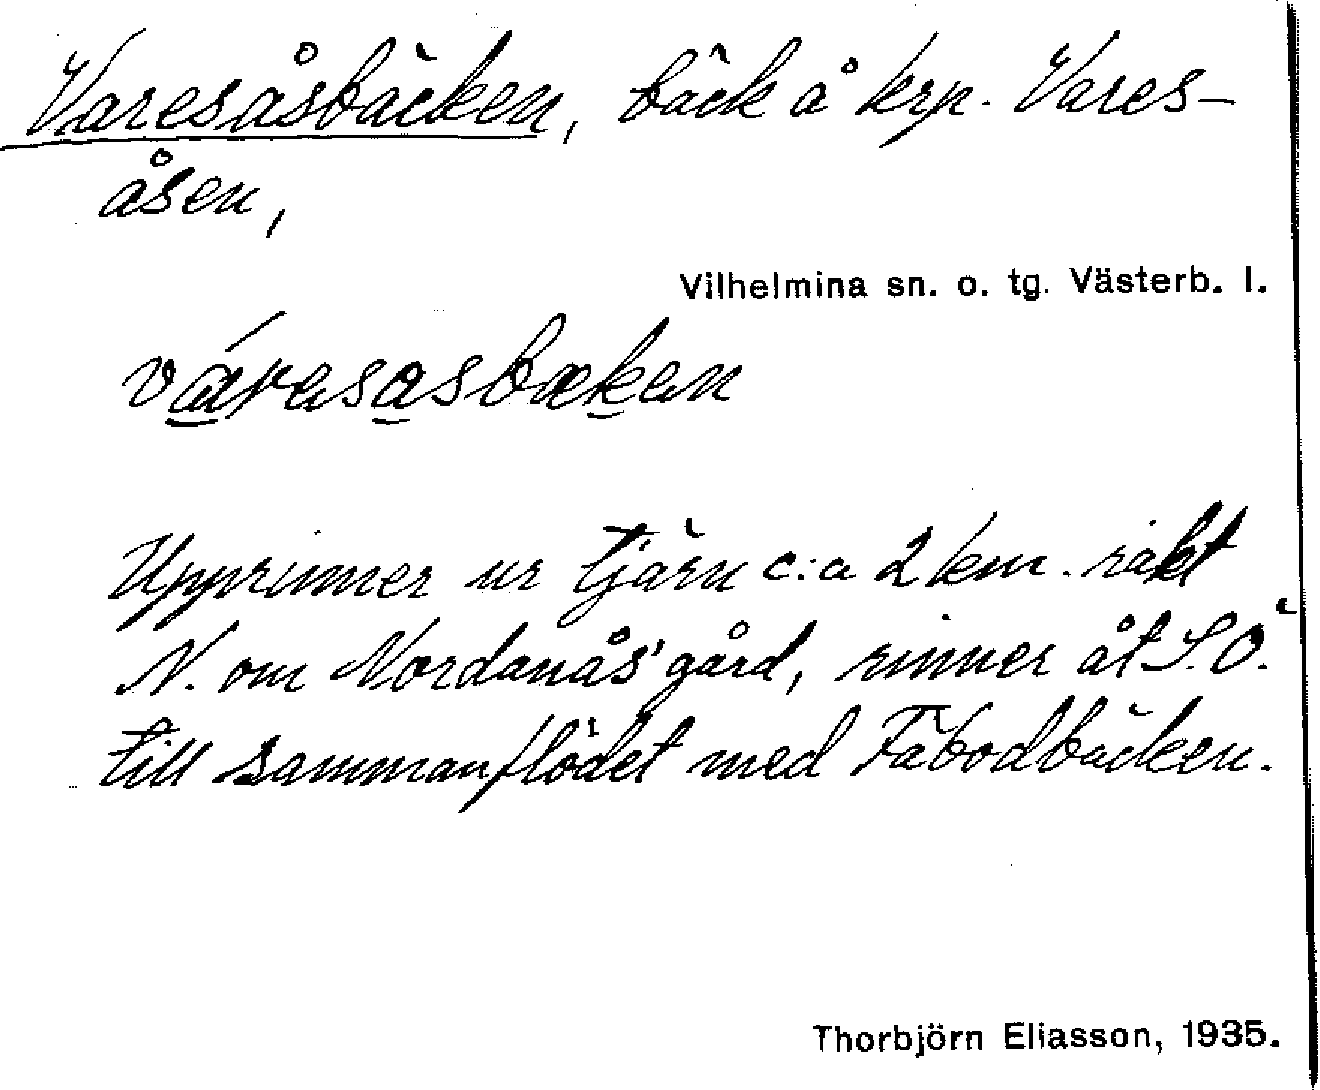 Varesåsbäcken, bäck å krp. Vares-
åsen,
Vilhelmina sn. o. tg. Västerb. l.
váresasbæken
Upprinner ur tjärn c:a 2 km. rakt
N. om Nordanås' gård, rinner åt S.O.
till sammanflödet med Fäbodbäcken.
Thorbjörn Eliasson, 1935.